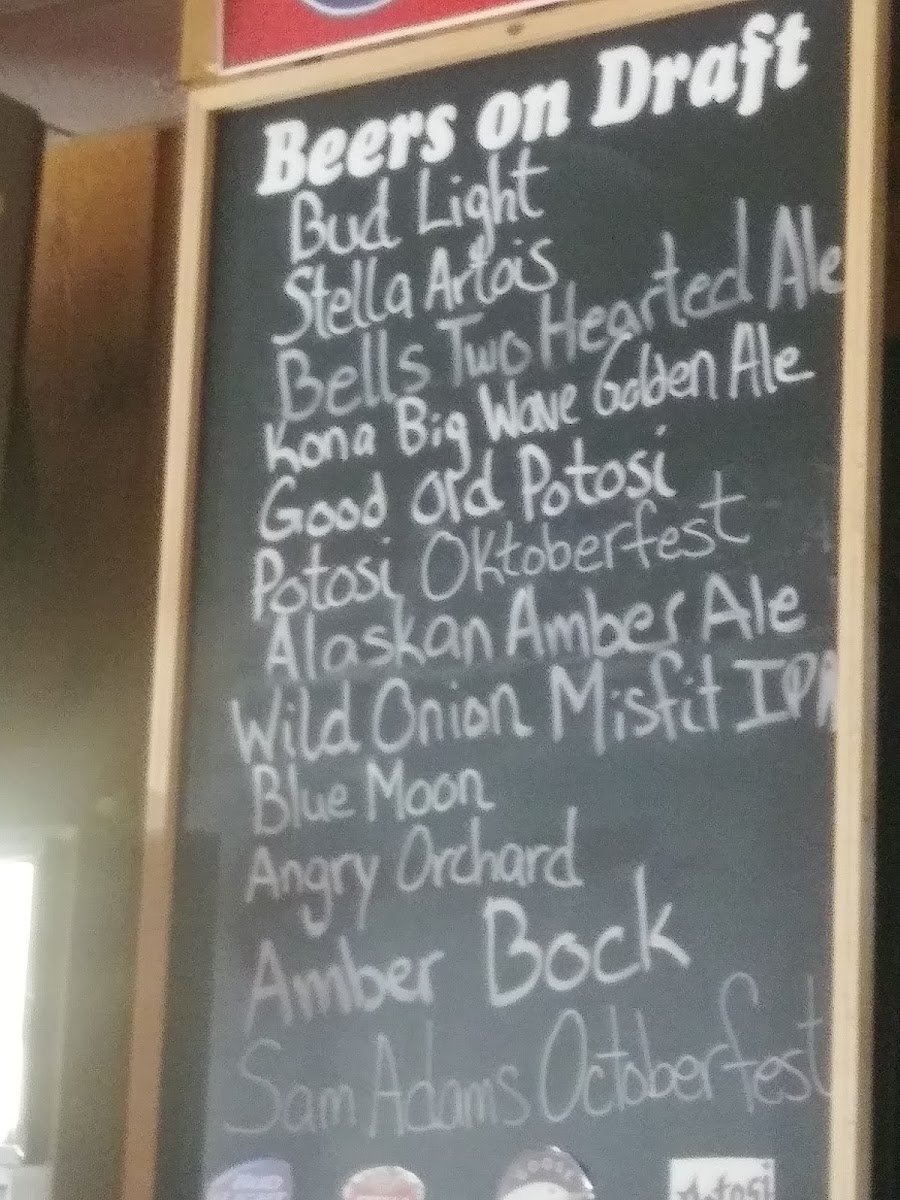 Beers on Draft
Bud Light
Stella Artois
Bells Two Hearted Ale
Kona Big Wave Golden Ale
Good Old Potosi
Potosi Oktoberfest
Alaskan Amber Ale
Wild Onion Misfit IPA
Blue Moon
Angry Orchard
Amber Bock
Sam Adams Octoberfest